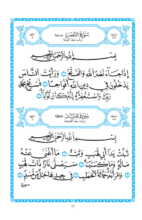 سُورَةُ النَّصْرِ
بِسْمِ اللَّهِ الرَّحْمَٰنِ الرَّحِيمِ
إِذَا جَاءَ نَصْرُ اللَّهِ وَالْفَتْحُ وَرَأَيْتَ النَّاسَ
يَدْخُلُونَ فِي دِينِ اللَّهِ أَفْوَاجًا فَسَبِّحْ بِحَمْدِ
رَبِّكَ وَاسْتَغْفِرْهُ إِنَّهُ كَانَ تَوَّابًا
بِسْمِ اللَّهِ الرَّحْمَٰنِ الرَّحِيمِ
تَبَّتْ يَدَا أَبِي لَهَبٍ وَتَبَّ مَا أَغْنَىٰ عَنْهُ
مَالُهُ وَمَا كَسَبَ سَيَصْلَىٰ نَارًا ذَاتَ لَهَبٍ
وَامْرَأَتُهُ حَمَّالَةَ الْحَطَبِ فِي جِيدِهَا حَبْلٌ مِنْ مَسَدٍ